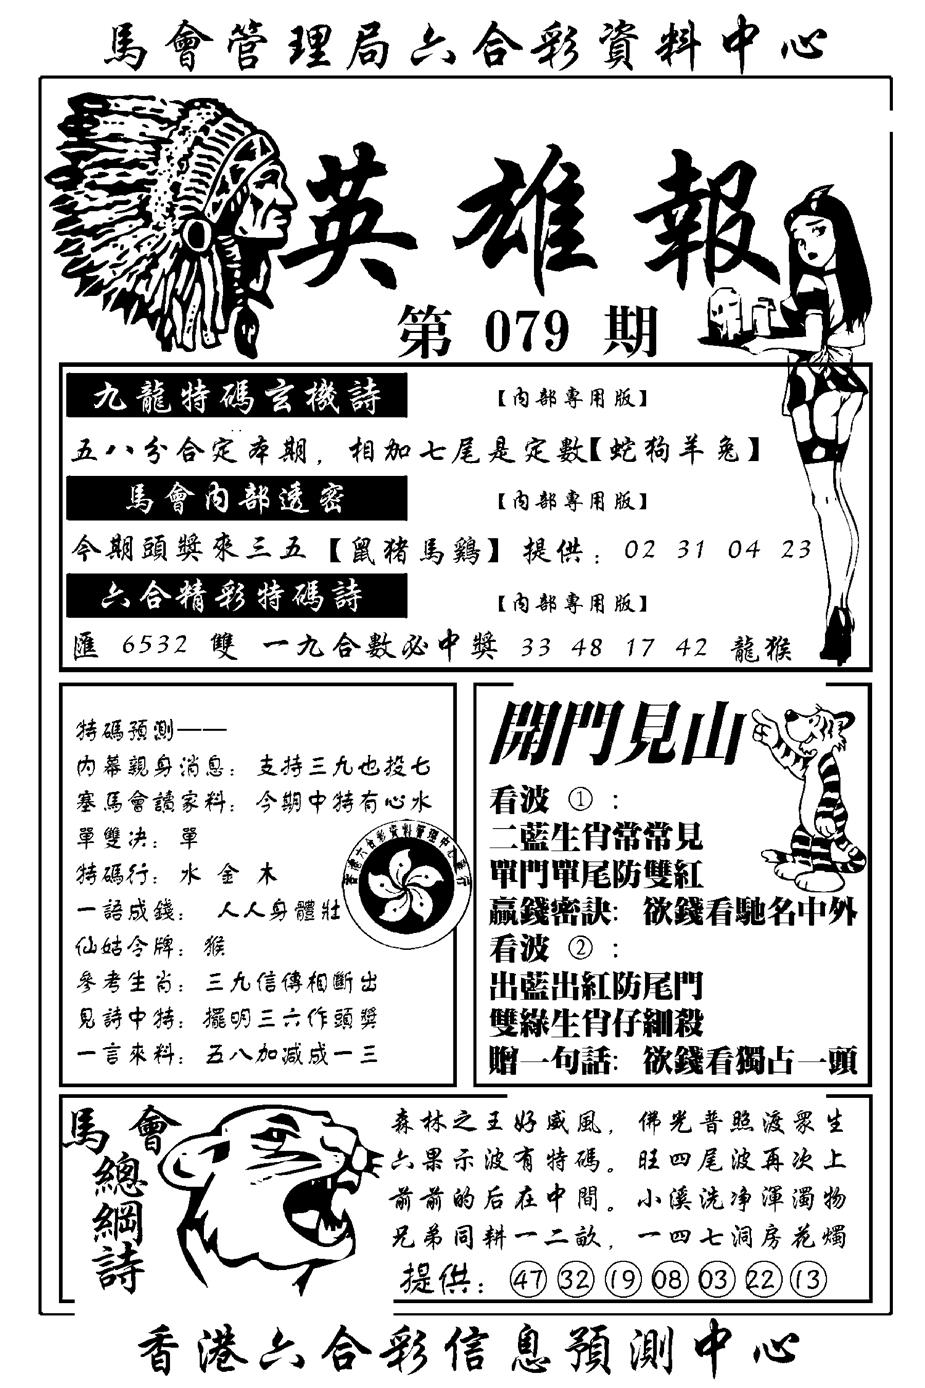 馬會管理局六合彩資料中心
英雄報
第 079 期
九龍特碼玄機詩 【內部專用版】
五八分合定本期，相加七尾是定數【蛇狗羊兔】
馬會內部透密 【內部專用版】
今期頭獎來三五【鼠猪馬鷄】提供：02 31 04 23
六合精彩特碼詩 【內部專用版】
匯 6532 雙 一九合數必中獎 33 48 17 42 龍猴
特碼預測——
內幕親身消息：支持三九也投七
塞馬會讀家料：今期中特有心水
單雙决：單
特碼行：水 金 木
一語成錢： 人人身體壯
仙姑令牌：猴
參考生肖：三九信傳相斷出
見詩中特：擺明三六作頭獎
一言來料：五八加减成一三
香港六合彩資料管理中心發行
開門見山
看波 ①：
二藍生肖常常見
單門單尾防雙紅
贏錢密訣：欲錢看馳名中外
看波 ②：
出藍出紅防尾門
雙綠生肖仔細殺
贈一句話：欲錢看獨占一頭
馬會
總綱詩
森林之王好威風，佛光普照渡眾生
六果示波有特碼。旺四尾波再次上
前前的后在中間。小溪洗净渾濁物
兄弟同耕一二畝，一四七洞房花燭
提供：㊼ ㉜ ⑲ 08 03 ㉒ ⑬
香港六合彩信息預測中心